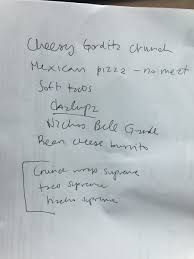 Cheesy Gordita Crunch
Mexican pizza - no meat
Soft tacos
Nachos Bell Grande
Bean cheese burrito
Crunch wrap supreme
taco supreme
nacho supreme